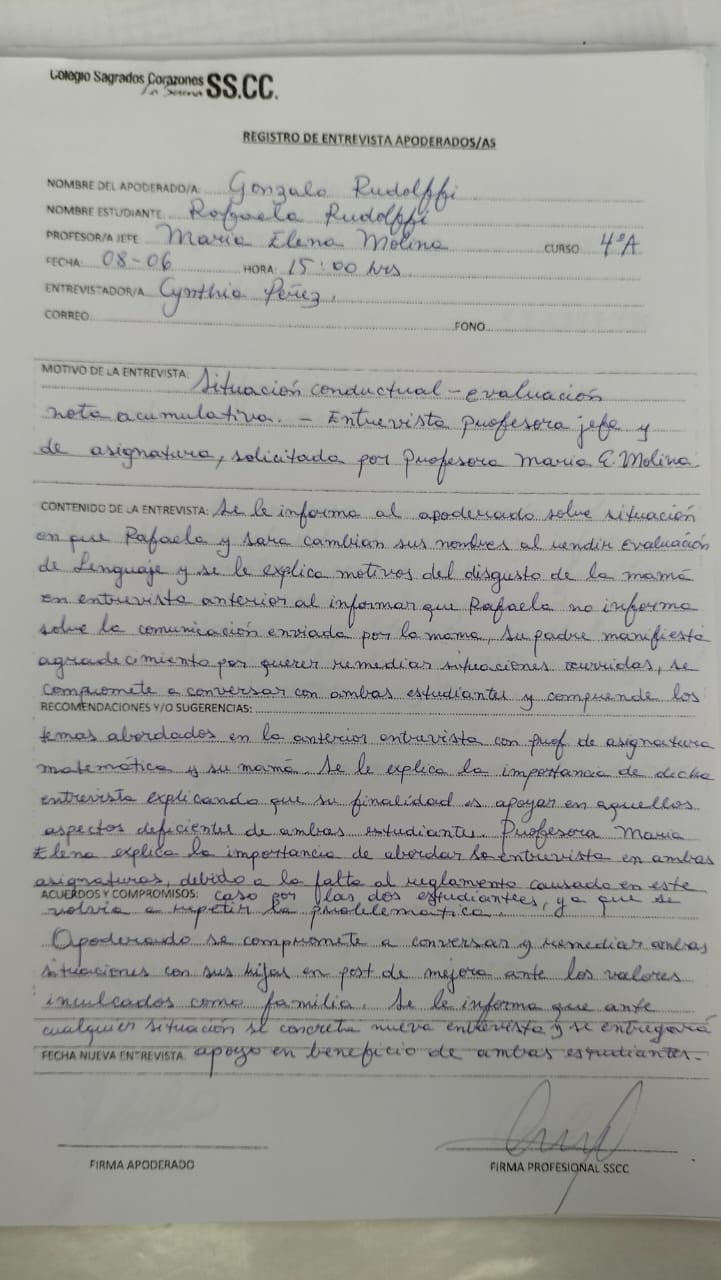 Colegio Sagrados Corazones SS.CC.
La Serena
REGISTRO DE ENTREVISTA APODERADOS/AS
NOMBRE DEL APODERADO/A: Gonzalo Rudolffi
NOMBRE ESTUDIANTE Rafaela Rudolffi
PROFESOR/A JEFE Maria Elena Molina CURSO 4°A
FECHA: 08-06 HORA: 15:00 hrs.
ENTREVISTADOR/A Cynthia Pérez.
CORREO FONO
MOTIVO DE LA ENTREVISTA: Situación conductual - evaluación
nota acumulativa. - Entrevista profesora jefe y
de asignatura, solicitada por Profesora Maria E. Molina.
CONTENIDO DE LA ENTREVISTA: Se le informa al apoderado sobre situación
en que Rafaela y Sara cambian sus nombres al rendir evaluación
de Lenguaje y se le explica motivos del disgusto de la mamá
en entrevista anterior al informar que Rafaela no informa
sobre la comunicación enviada por la mama, su padre manifiesta
agradecimiento por querer remediar situaciones ocurridas, se
compromete a conversar con ambas estudiantes y comprende los
RECOMENDACIONES Y/O SUGERENCIAS:
temas abordados en la anterior entrevista con prof. de asignatura
matemática y su mamá. Se le explica la importancia de dicha
entrevista explicando que su finalidad es apoyar en aquellos
aspectos deficientes de ambas estudiantes. Profesora Maria
Elena explica la importancia de abordar la entrevista en ambas
asignaturas, debido a la falta al reglamento causado en este
ACUERDOS Y COMPROMISOS: caso por las dos estudiantes, ya que se
volvia a repetir la problematica.
Apoderado se compromete a conversar y remediar ambas
situaciones con sus hijas en post de mejora ante los valores
inculcados como familia. Se le informa que ante
cualquier situación se concreta nueva entrevista y se entregará
FECHA NUEVA ENTREVISTA: apoyo en beneficio de ambas estudiantes.
FIRMA APODERADO FIRMA PROFESIONAL SSCC